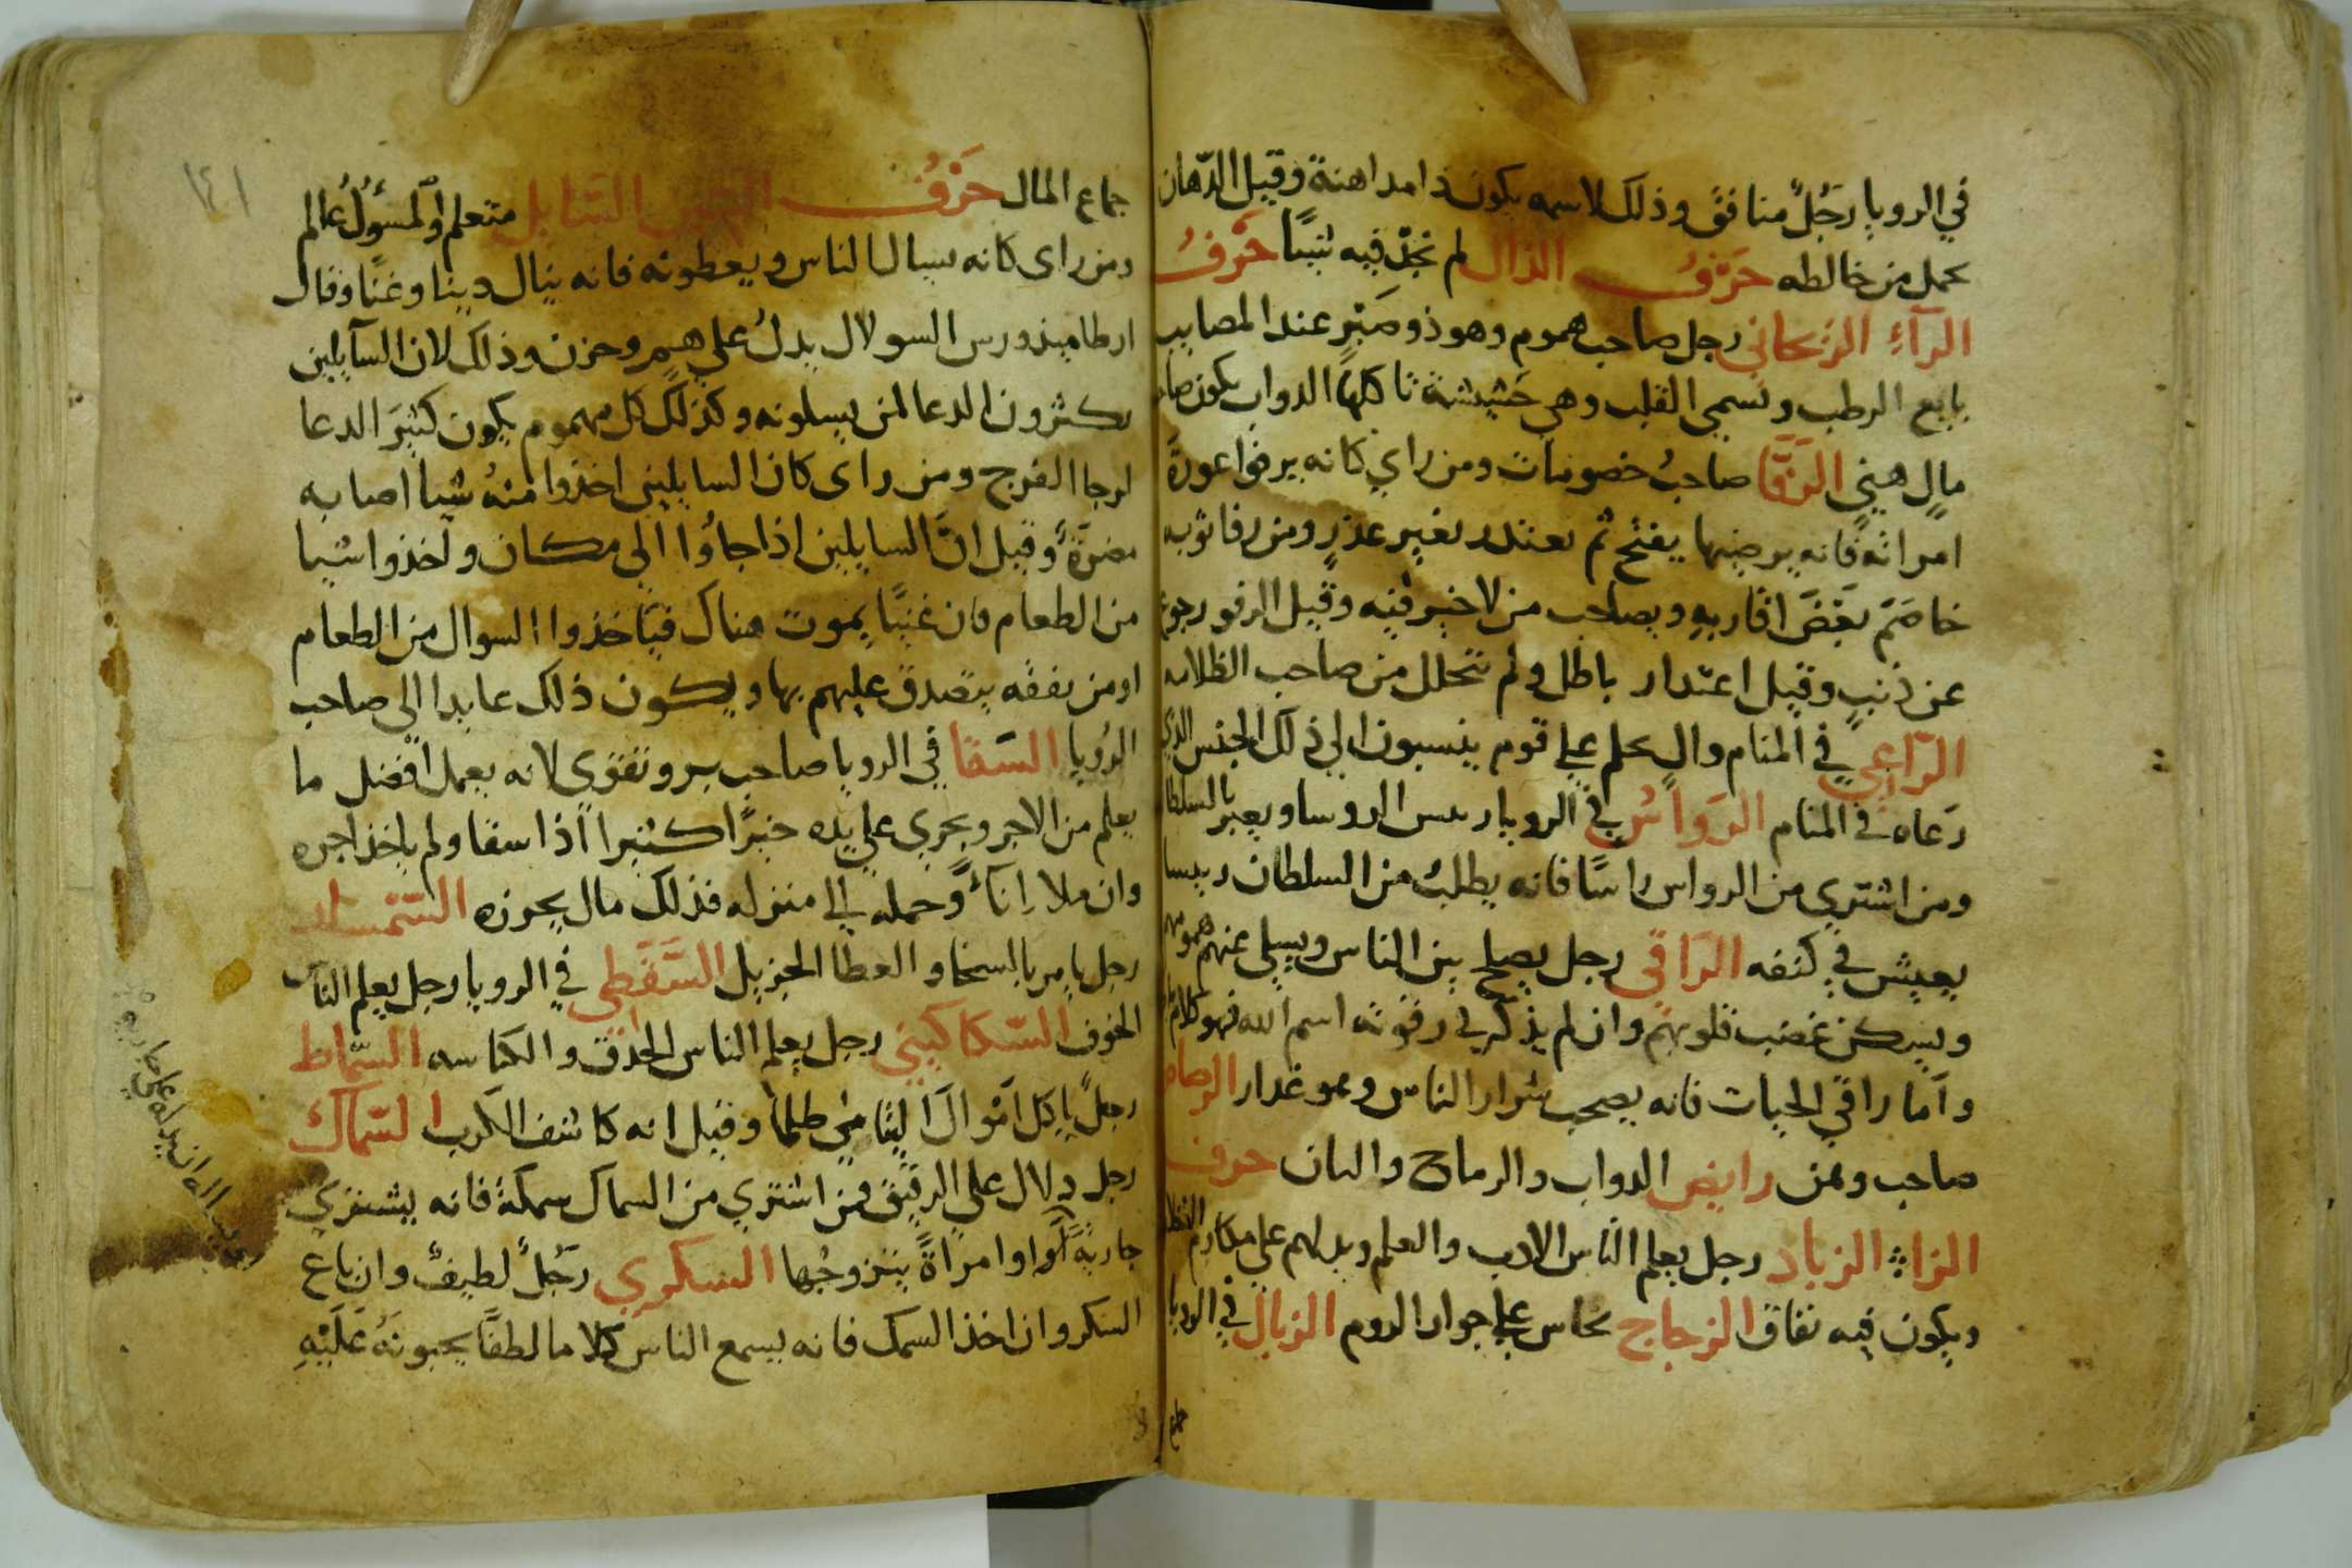 في الرويا رَجُلٌ منافق وذلك لاسمه يكون ذا مداهنة وقيل الدّهان
يحمل من خالطه حَرْفُ الذال لم نجد فيه شيئًا حَرْفُ
الرآءِ الريحاني رجل صاحب هموم وهو ذو صَبْرٍ عند المصايب
بايع الرطب وتسمى القلب وهي حَشيشة تاكلها الدواب يكون صاحب
مالٍ هنيٍ الرَفَّا صاحبُ خصومات ومن راي كانه يرفوا عورة
امراته فانه يرميها بفتح ثم يعتذر بغير عذرٍ ومن رفا ثوبه
خاصَمَ بَعْضَ اقاربهِ ويصاحب من لا خير فيه وقيل الرفو رجوع
عن ذنبٍ وقيل اعتدار باطل ولم تتحلل من صاحب الظلامه
الرّاعي في المنام والٍ يحكم علي قوم ينسبون الي ذلك الجنس الذي
رَعاه في المنام الرَواسُ في الرويا رييس الروسا ويعبر بالسلطان
ومن اشتري من الرواس راسًا فانه يطلبُ من السلطان رييسا
يعيش في كنفه الرّاقي رجل يصلح بين الناس ويسلي عنهم همومهم
ويسكن غضب قلوبهم وان لم يذكر في رقوته اسم الله فهو كلام
واما راقي الحيات فانه يصحب شرار الناس وهو غدار الرصاص
صاحب ومن رايض الدواب والرماح والبان حرف
الزاي الزياد رجل يعلم الناس الادب والعلم ويدلهم علي مكارم
ويكون فيه نفاق الزجاج نخاس علي جوار الروم الزبال في الرويا
جماع
جماع المال حَرْفُ السين السّايل متعلم والمسؤُلُ عالم
ومن راى كانه يسال الناس ويعطونه فانه ينال دينا وغنًا وقال
ارطاميدورس السوال يدلُ علي هم وحزن وذلك لان السآيلين
يكثرون الدعا لمن يسلونه وكذلك كل مهموم يكون كثيرَ الدعا
لرجا الفرج ومن راى كان السايلين اخذوا منهُ شيا اصابه
مضرّة وقيل انَّ السايلين اذا جاؤا الي مكان واخذوا شيا
من الطعام فان غنيًا يموت هناك فياخذوا السوال من الطعام
او من نفقه يتصدق عليهم بها ويكون ذلك عايدا الي صاحب
الرُويا السقا في الرويا صاحب بر وتقوي لانه يعمل افضل ما
يعلم من الاجر ويجري علي يده خيرًا كثيرا اذا سقا ولم ياخذ اجره
وان ملا اِناءً وحمله الي منزله فذلك مال يحوزه السّمسار
رجل يامر بالسخا والعطا الجزيل السَّقَطي في الرويا رجل يعلم الناس
الخوف السّكاكيني رجل يعلم الناس الحدق والكياسه السمّاط
رجلٌ ياكل اموال اليتامى ظلما وقيل انه كاشف الكرب السّماك
رجل دلال علي الرقيق فمن اشتري من السماك سمكة فانه يشتري
جاريةً او امراةً يتزوجُها السكري رَجُلٌ لطيفٌ وان باع
السكر وان اخذ السمك فانه يسمع الناس كلاما لطفًا يحبونَهُ عَلَيْهِ
١٤١